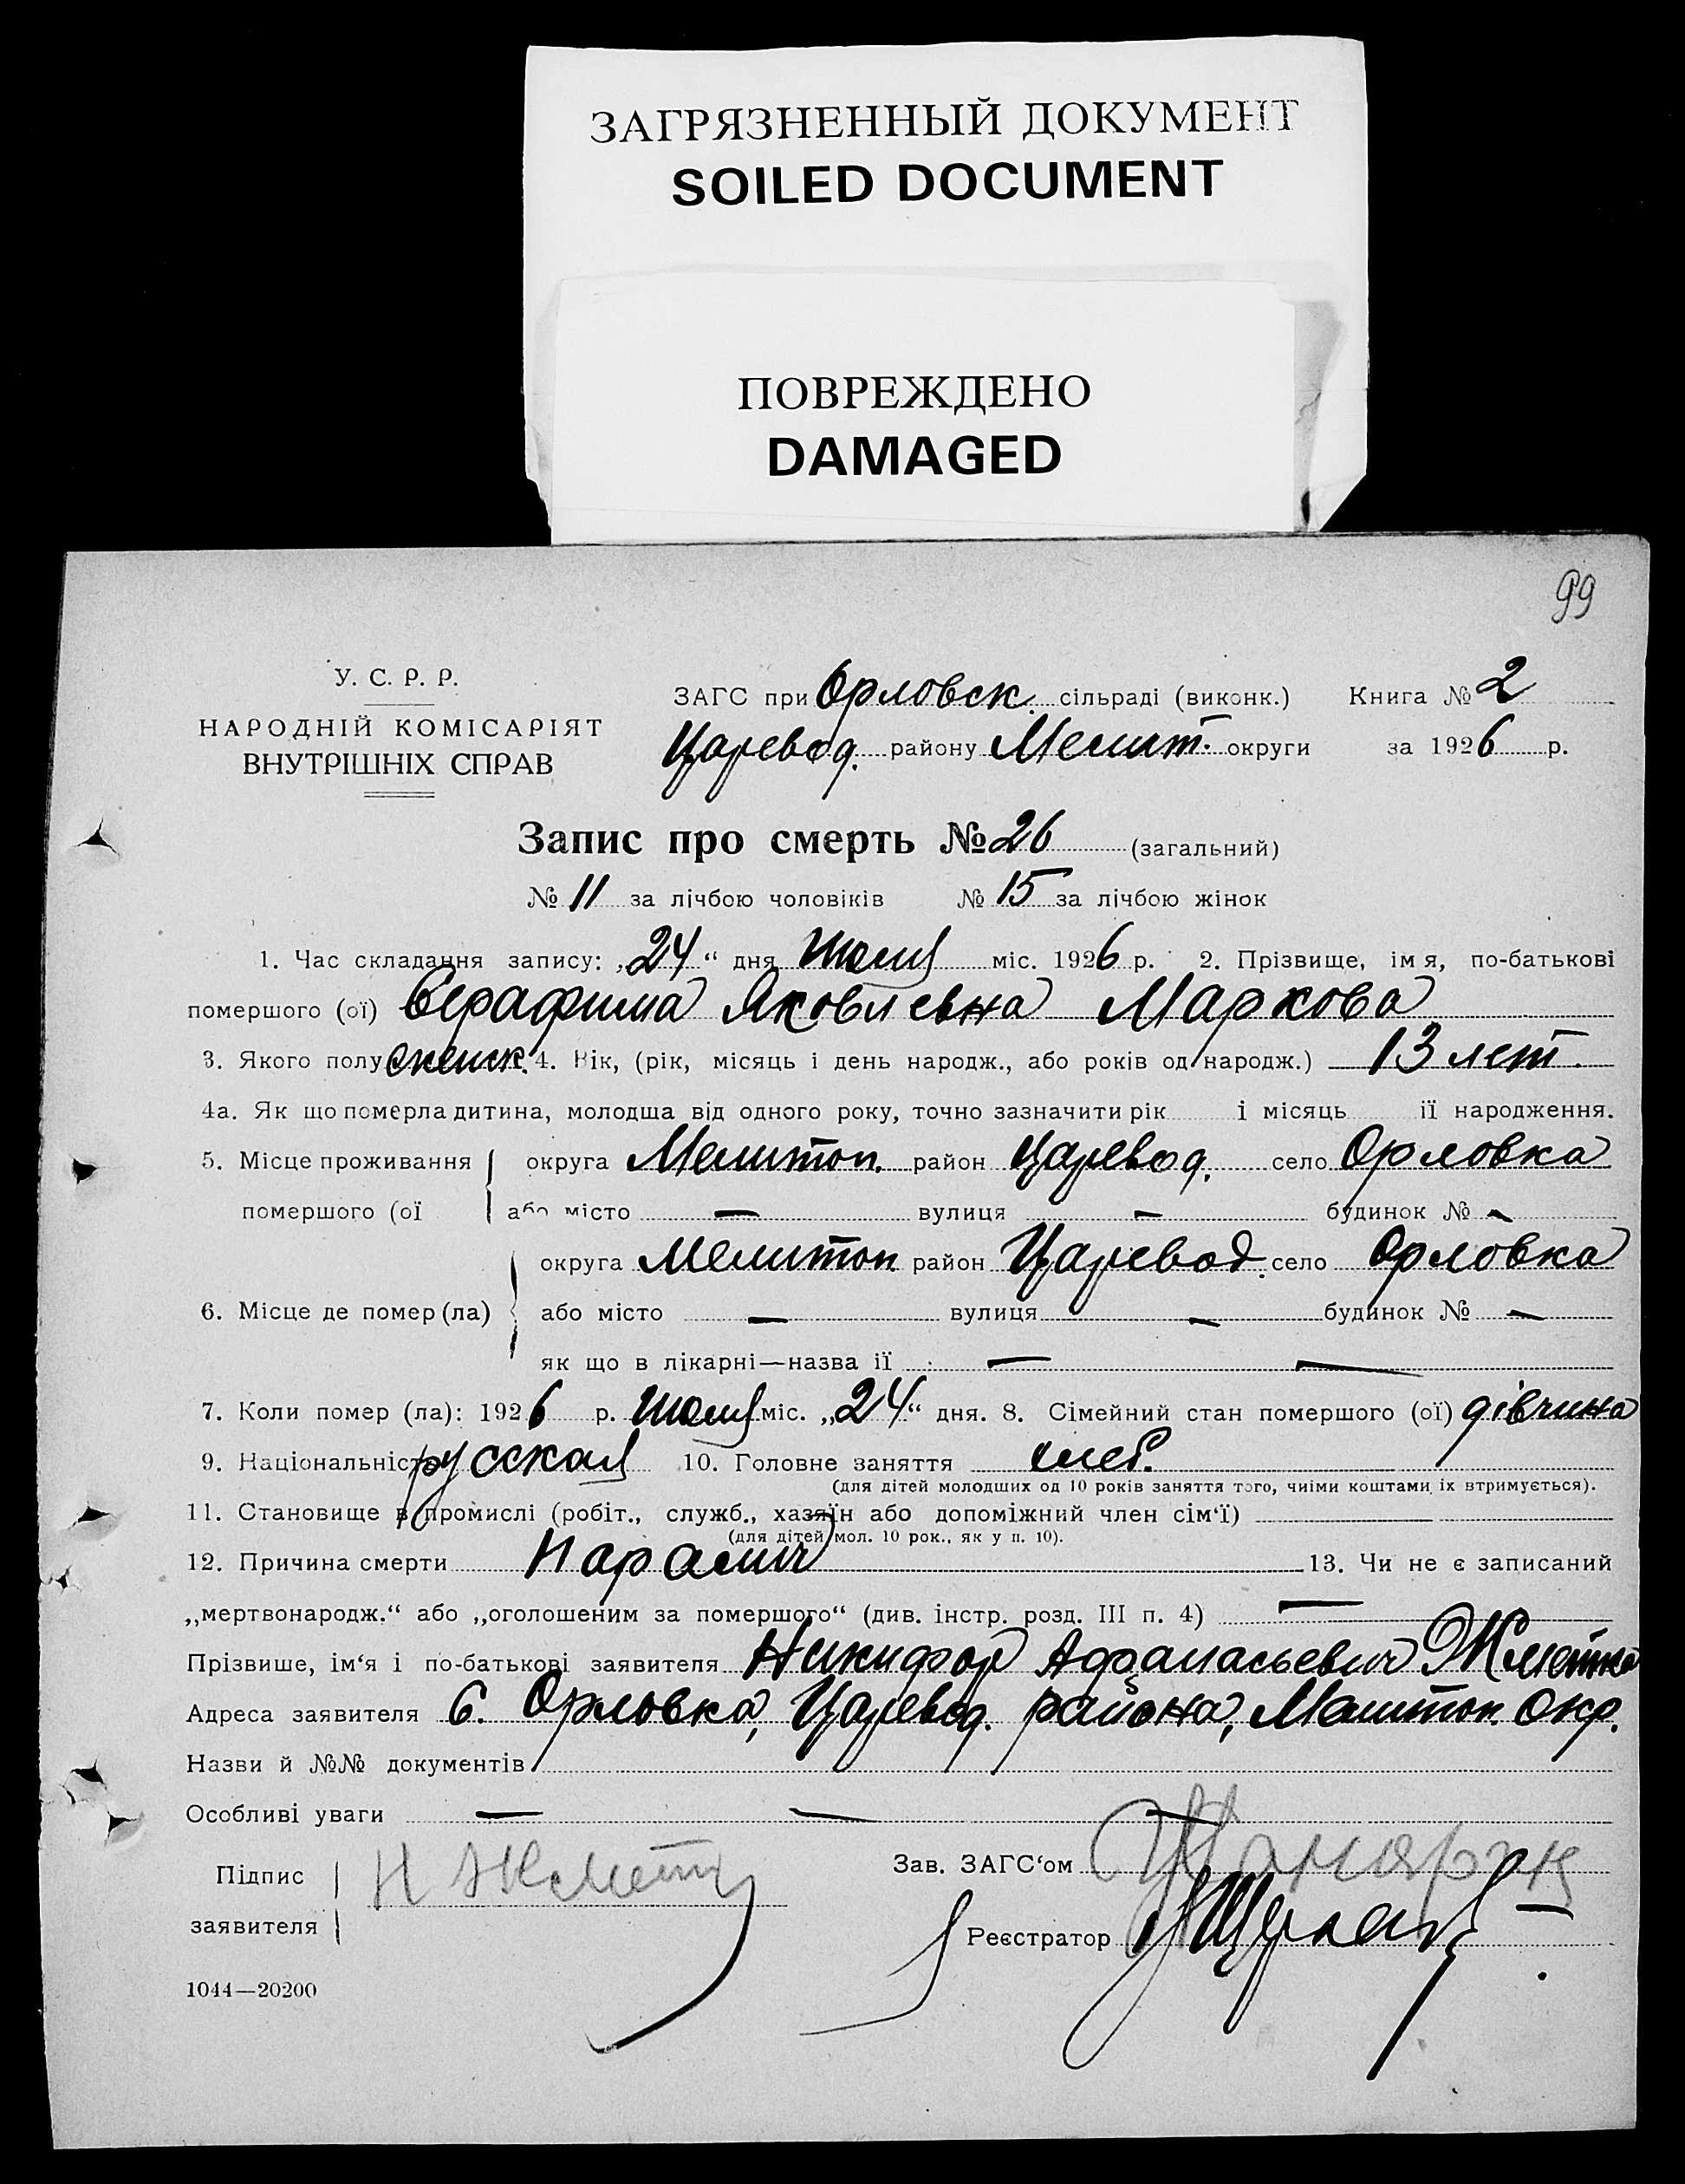 ЗАГРЯЗНЕННЫЙ ДОКУМЕНТ
SOILED DOCUMENT
ПОВРЕЖДЕНО
DAMAGED
99
У. С. Р. Р.
НАРОДНІЙ КОМІСАРІЯТ
ВНУТРІШНІХ СПРАВ
ЗАГС при Орловск. сільраді (виконк.) Книга № 2
Царевод. району Мелит. округи за 1926 р.
Запис про смерть № 26 (загальний)
№ 11 за лічбою чоловіків № 15 за лічбою жінок
1. Час складання запису: „24“ дня Июля міс. 1926 р. 2. Прізвище, ім я, по-батькові
помершого (ої) Серафима Яковлевна Маркова
3. Якого полу женск. 4. Вік, (рік, місяць і день народж., або років од народж.) 13 лет.
4а. Як що померла дитина, молодша від одного року, точно зазначити рік і місяць її народження.
5. Місце проживання округа Мелитоп. район Царевод. село Орловка
помершого (ої або місто — вулиця — будинок № —
округа Мелитоп район Царевод. село Орловка
6. Місце де помер (ла) або місто — вулиця — будинок № —
як що в лікарні—назва її — —
7. Коли помер (ла): 1926 р. Июля міс. „24“ дня. 8. Сімейний стан помершого (ої) дівчина
9. Національність русская 10. Головне заняття
(для дітей молодших од 10 років заняття того, чиїми коштами їх втримується).
11. Становище в промислі (робіт., служб., хазяїн або допоміжний член сім‘ї)
(для дітей мол. 10 рок., як у п. 10).
12. Причина смерти Паралич 13. Чи не є записаний
„мертвонародж.“ або „оголошеним за помершого“ (див. інстр. розд. III п. 4) —
Прізвише, ім‘я і по-батькові заявителя Никифор Афанасьевич
Адреса заявителя С. Орловка, Царевод. района, Мелитоп. окр.
Назви й №№ документів
Особливі уваги — —
Підпис
заявителя
Зав. ЗАГС‘ом
Реєстратор
1044—20200